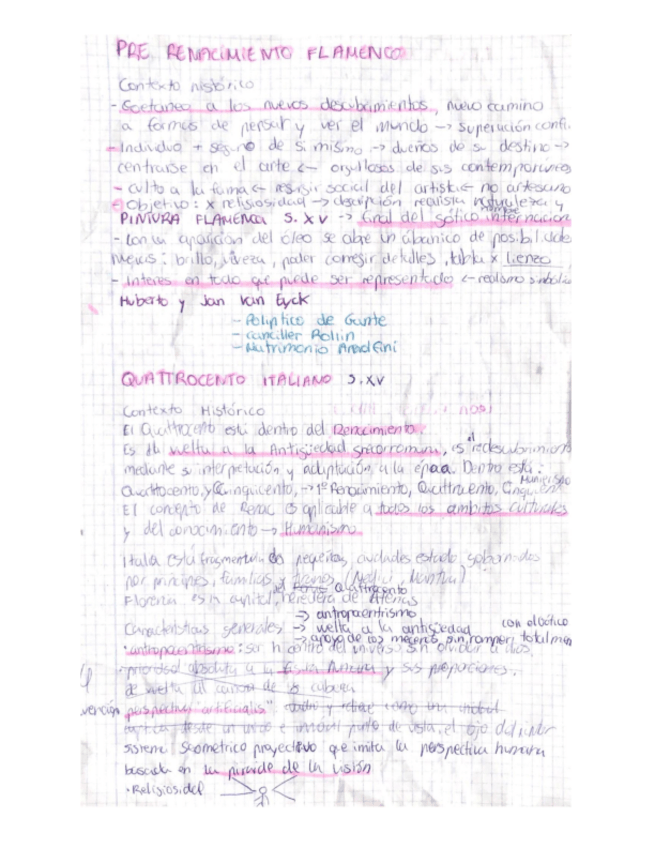 PRE RENACIMIENTO FLAMENCO
Contexto histórico
- Coetaneo a los nuevos descubrimientos, nuevo camino
a formas de pensar y ver el mundo → superación confi.
- Individuo + seguro de si mismo → dueños de su destino →
centrarse en el arte ← orgullosos de sus contemporáneos
- culto a la fama ← resurgir social del artista ← no artesano
Objetivo: x religiosidad → descripción realista naturaleza y
hombre
PINTURA FLAMENCA S. XV → final del gótico internacion
- Con la aparición del óleo se abre un abanico de posibilidade
nuevas: brillo, viveza, poder corregir detalles, tabla x lienzo
- Interes en todo que puede ser representado ← realismo simbólic
Huberto y Jan Van Eyck
- Poliptico de Gante
- Canciller Rollin
- Matrimonio Arnolfini
QUATTROCENTO ITALIANO S. XV
Contexto Histórico
El Quattrocento está dentro del Renacimiento.
Es la vuelta a la Antigüedad grecorromana, es el redescubrimient
mediante su interpretación y adaptación a la época. Dentro está:
Quattrocento, y Cinquecento, → 1º Renacimiento, Quattrocento, Cinquecento
Manierismo
El concepto de Renac es aplicable a todos los ambitos culturales
y del conocimiento → Humanismo
Italia está fragmentada en pequeñas, ciudades estado gobernados
por principes, familias y tiranos (Medici,
el Quattrocento
Florencia es la capital, heredera de Atenas
→ antropocentrismo
Características generales → vuelta a la antigüedad con el Gótico
→ apoyo de los mecenas, sin romper totalmen
· antropocentrismo: ser h centro del universo sin olvidar a dios,
absoluta a la y sus proporciones.
se vuelta al canon de
perspectiva "artificialis" como una
desde un único e inmóvil punto de vista, el ojo del
sistema geometrico proyectivo que imita la perspectiva humana
basada en la piramide de la visión
· Religiosidad